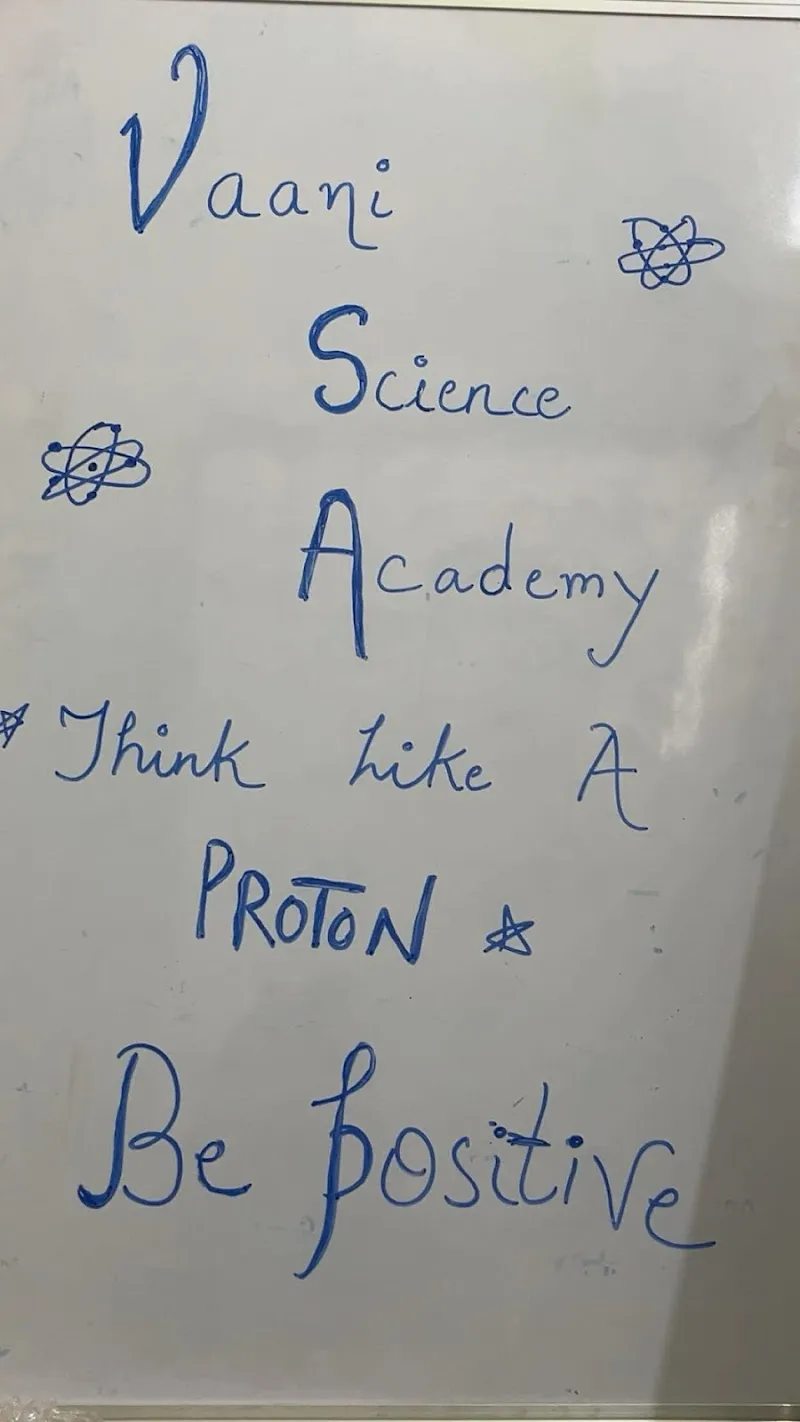 Vaani
Science
Academy
Think Like A
PROTON
Be positive